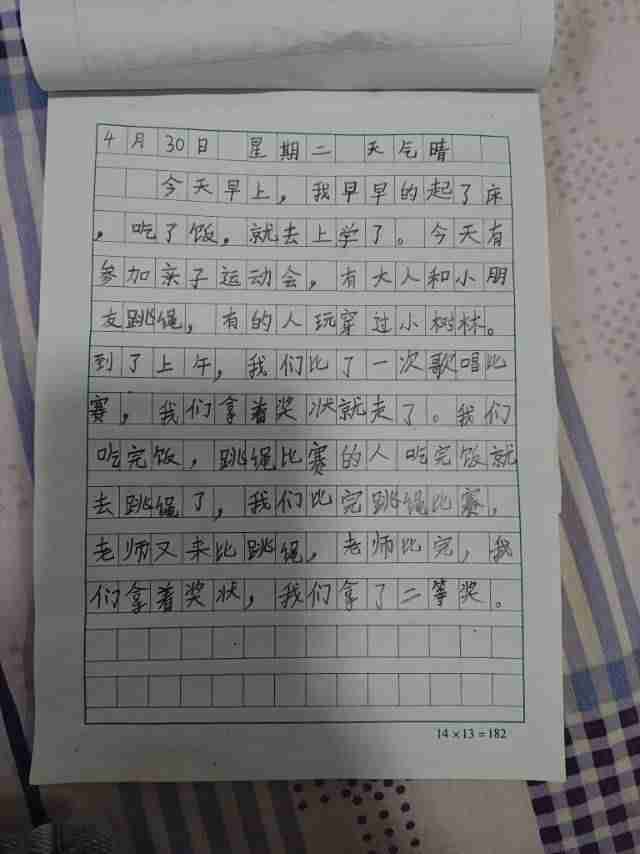 4月30日 星期二 天气晴
今天早上，我早早的起了床
，吃了饭，就去上学了。今天有
参加亲子运动会，有大人和小朋
友跳绳，有的人玩穿过小树林。
到了上午，我们比了一次歌唱比
赛，我们拿着奖状就走了。我们
吃完饭，跳绳比赛的人吃完饭就
去跳绳了，我们比完跳绳比赛，
老师又来比跳绳，老师比完，我
们拿着奖状，我们拿了二等奖。
14×13=182